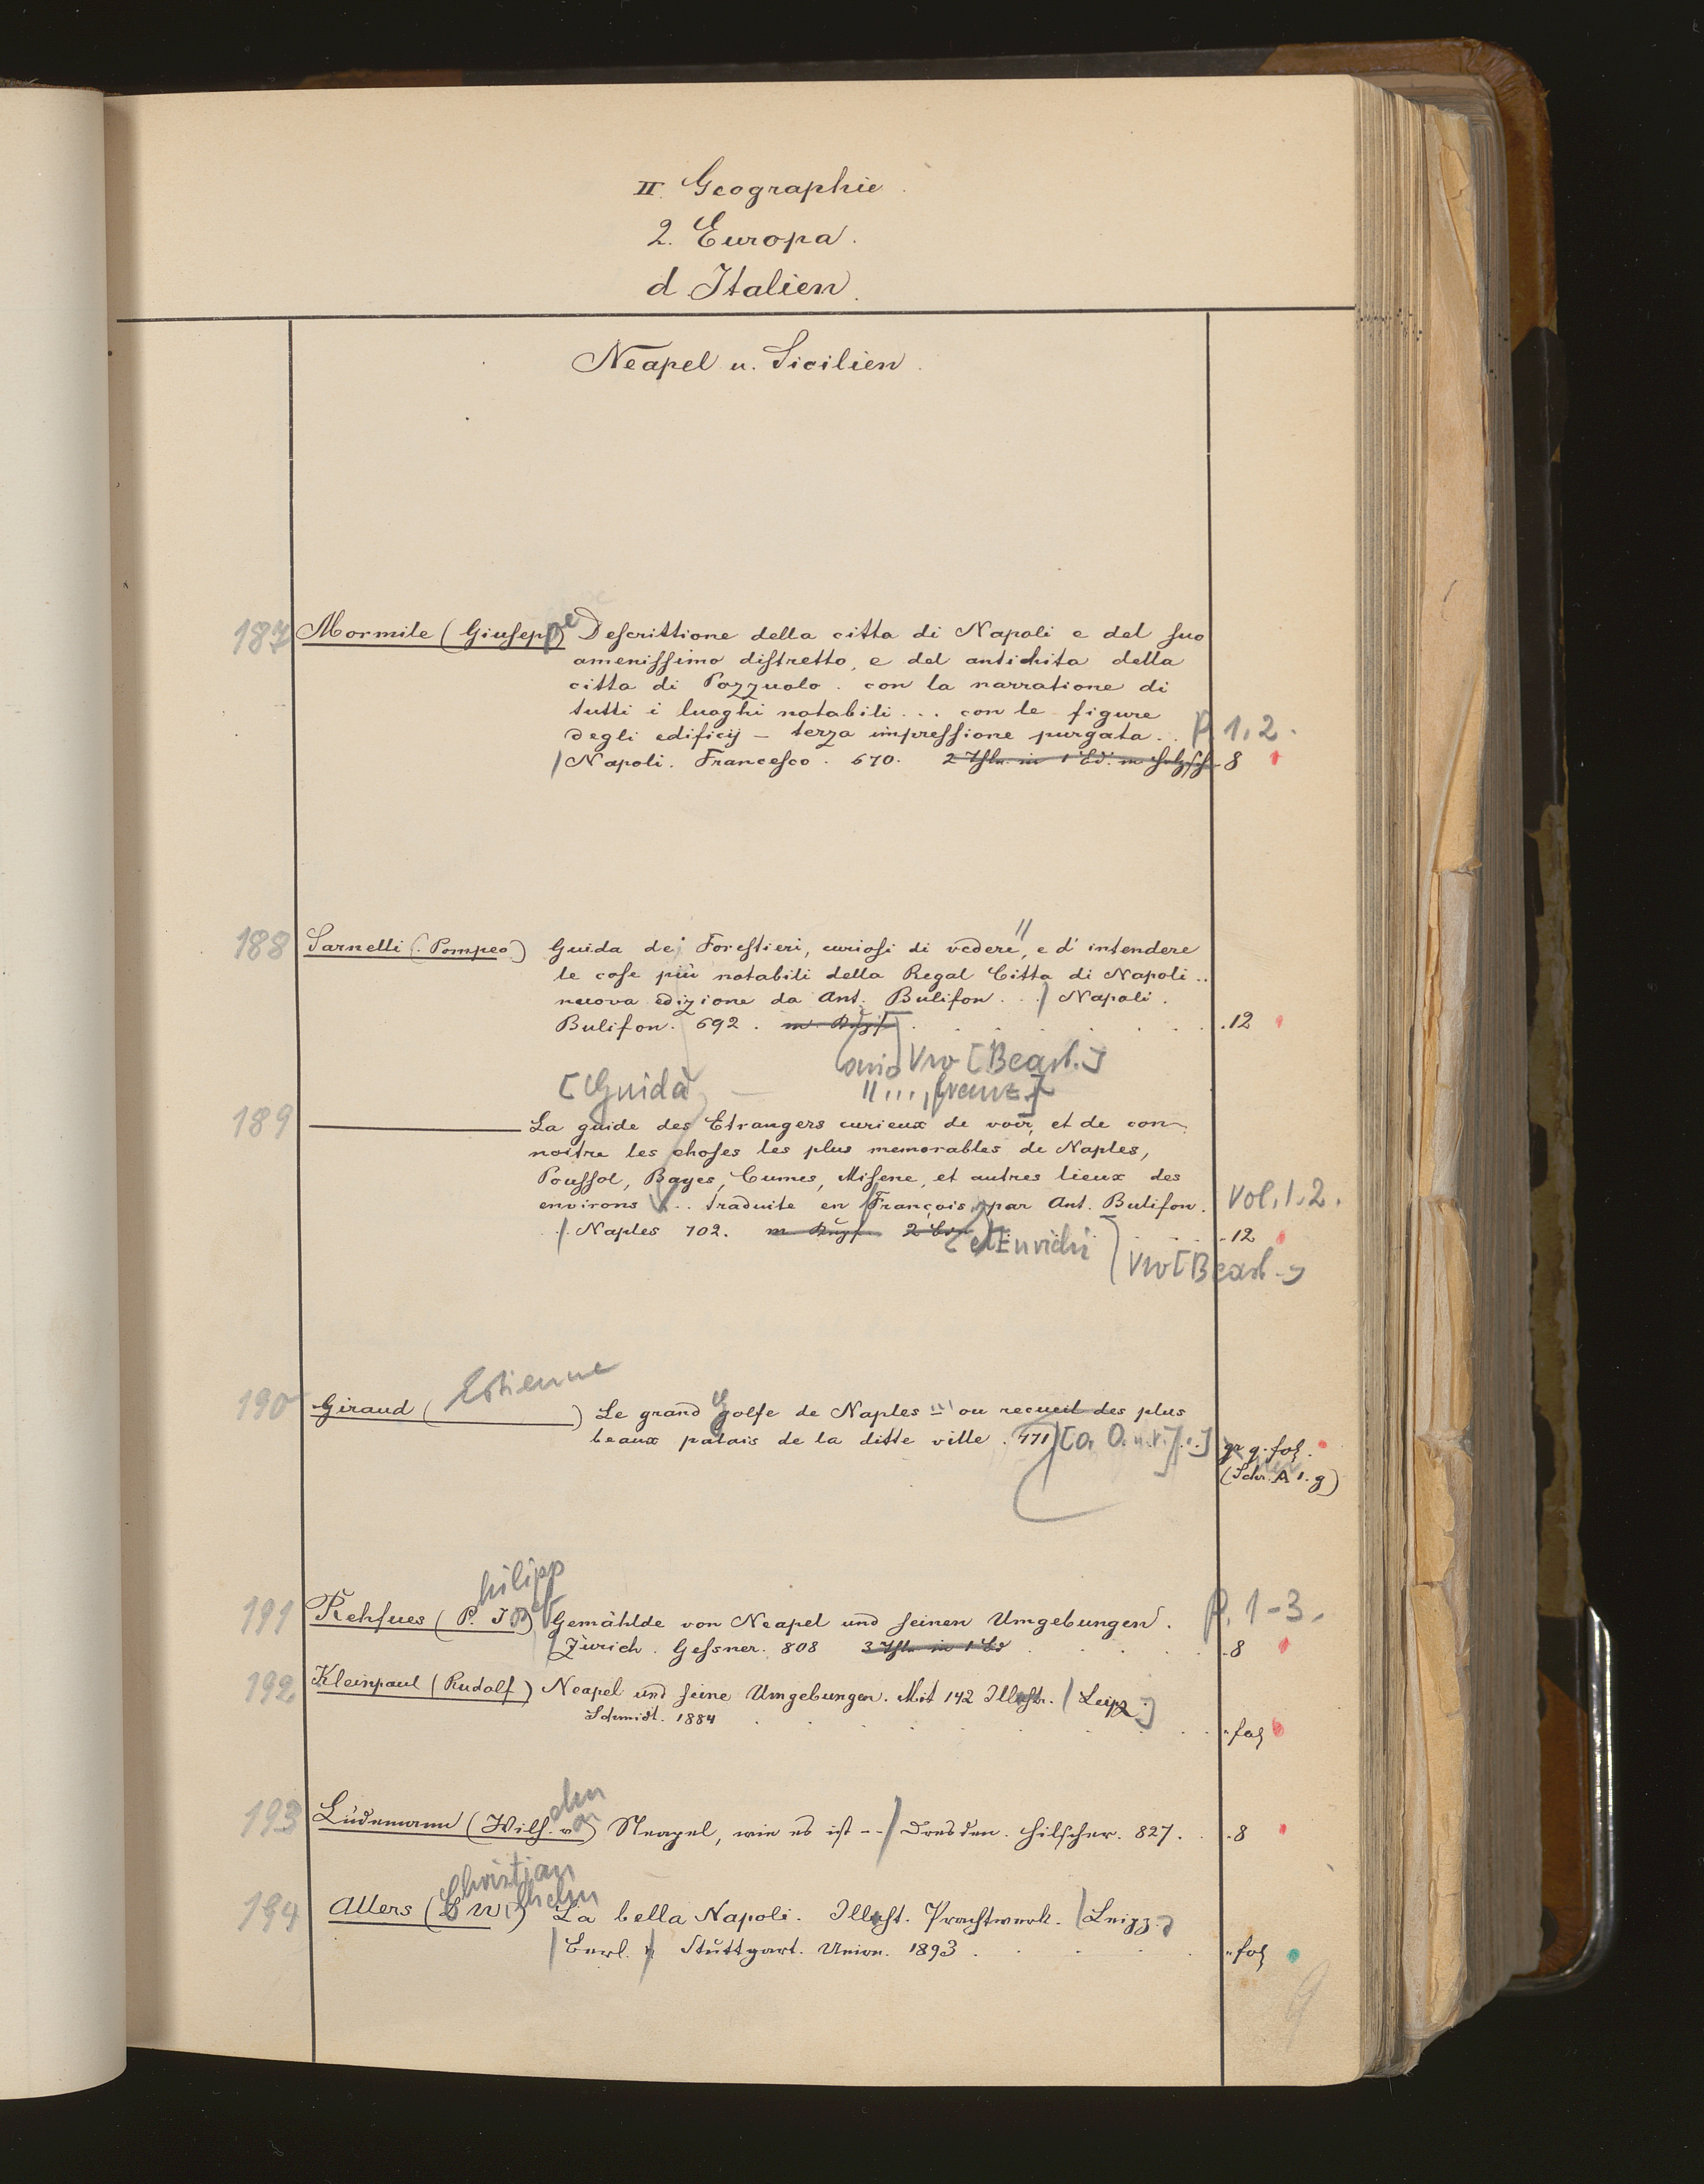 II. Geographie.
2. Europa.
d Italien.
Neapel u. Sicilien.
187 Mormile (Giuseppe) Descrittione della citta di Napoli e del suo
amenissimo distretto, e del antichita della
citta di Pozzuolo. con la narratione di
tutti i luoghi notabili... con le figure
degli edificij - terza impressione purgata.. P. 1,2.
Napoli. Francesco. 670. 2 Thle. in 1 Bd. m Holzsch. 8
188 Sarnelli (Pompeo) Guida dei Forestieri, curiosi di vedere, e d'intendere
le cose più notabili della Regal Citta di Napoli..
nuova edizione da Ant. Bulifon... Napoli.
Bulifon. 692. m Kupf. 12
[Guida
Vw [Bearb.]
189 La guide des Etrangers curieux de voir, et de con-
noitre les choses les plus memorables de Naples,
Poussol, Bayes, Cumes, Misene, et autres lieux des
environs... traduite en François, par Ant. Bulifon. Vol. 1.2.
Naples 702. m Kupf. 2 Bde 12
et Enrichi
Vw [Bearb.]
190 Giraud (Estienne) Le grand Golfe de Naples ... ou recueil des plus
beaux palais de la ditte ville. 771 [O. O. u. gr q. fol.
(Schr. A 1. g)
191 Rehfues (Philipp J) Gemählde von Neapel und seinen Umgebungen. P. 1-3.
Zürich. Gessner. 808 3 Thle. in 1 Bd 8
192 Kleinpaul (Rudolf) Neapel und seine Umgebungen. Mit 142 Illustr. Leipz.
Schmidt. 1884 fol
193 Lüdemann (Wilhelm v) Neapel, wie es ist -- Dresden. Hilscher. 827. 8
194 Allers (Christian Wilhelm) La bella Napoli. Illust. Prachtwerk. Leipz.
Berl. Stuttgart. Union. 1893. fol